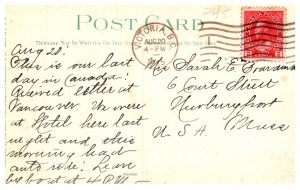 245
POST CARD
VICTORIA, B.C.
AUG 20
4-PM
MESSAGE MAY BE WRITTEN ON THIS
Aug 20.
This is our last
day in Canada.
Received letter at
Vancouver. We were
at Hotel here last
night and this
morning had
auto ride. Leave
by boat at 4 P.M.
Miss Sarah E. Boardman
6 Court Street
Newburyport
U S A Mass